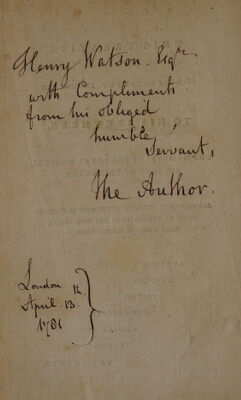 Henry Watson Esqre
with Compliments
from his obliged
humble Servant,
The Author.
London
April 13th
1781